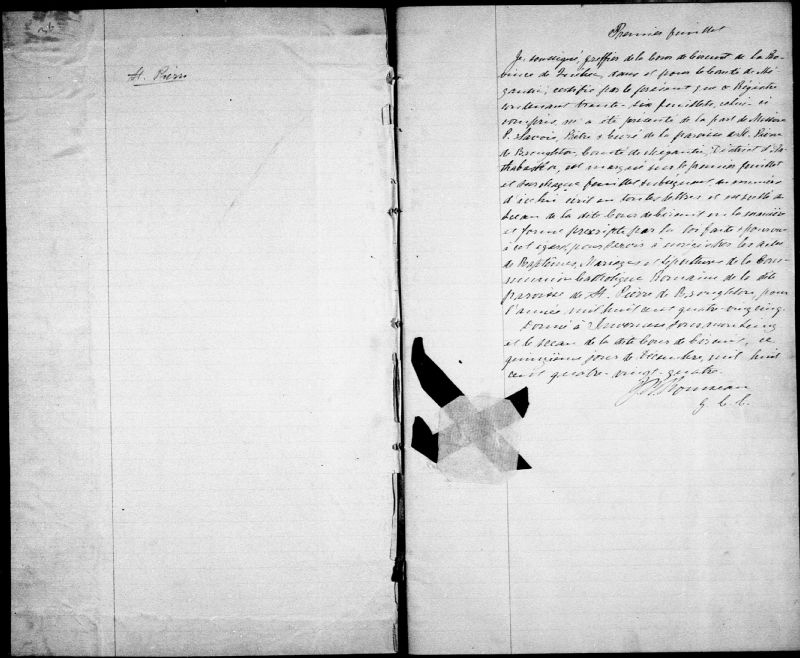 St. Pierre
Premier feuillet
Je, soussigné, greffier de la Cour de Circuit de la Pro-
vince de Québec, dans et pour le comté de Mé-
gantic, certifie par le présent que ce Régistre
contenant trente-six feuillets, celui-ci
compris, m'a été présenté de la part de Messire
P. Savoie, Prêtre & Curé de la paroisse de St. Pierre
de Broughton, Comté de Mégantic, District d'Ar-
thabaska, est marqué sur le premier feuillet
et sur chaque feuillet subséquent, du numéro
d'icelui écrit en toutes lettres et du
sceau de la dite Cour de Circuit en la manière
et forme prescrite par la loi faite & pourvue
à cet égard, pour servir à enregistrer les actes
de Baptêmes, Mariages et Sépultures de la Com-
munion Catholique Romaine de la dite
paroisse de St. Pierre de Broughton, pour
l'année mil huit cent quatre-vingt cinq.
Donné à Inverness sous mon seing
et le sceau de la dite Cour de Circuit, ce
quinzième jour de Décembre, mil huit
cent quatre-vingt-quatre.
Rousseau
G. C. C.